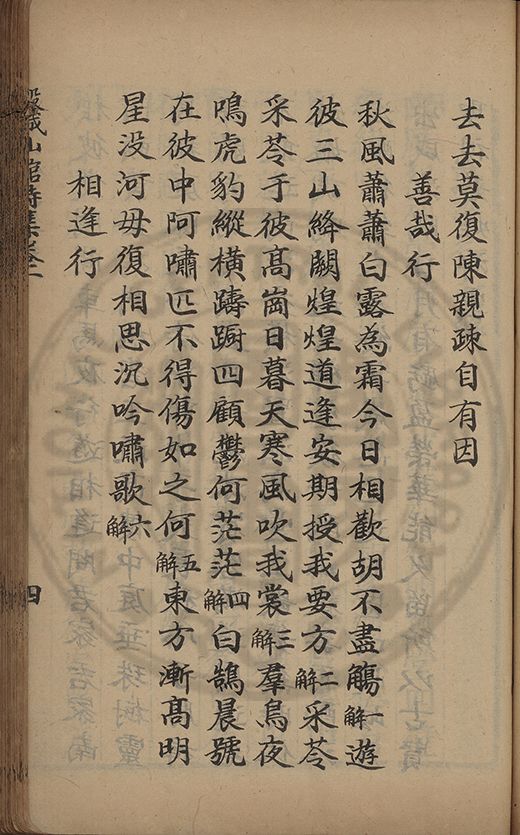 去去莫復陳親疎自有因
善哉行
秋風蕭蕭白露為霜今日相歡胡不盡觴一解遊
彼三山絳闕煌煌道逢安期授我要方二解采苓
采苓于彼髙崗日暮天寒風吹我裳三解羣烏夜
鳴虎豹縱橫躊蹰四顧鬱何茫茫四解白鵠晨號
在彼中阿嘯匹不得傷如之何五解東方漸髙明
星没河毋復相思沉吟嘯歌六解
相逢行
山館詩集卷二
四